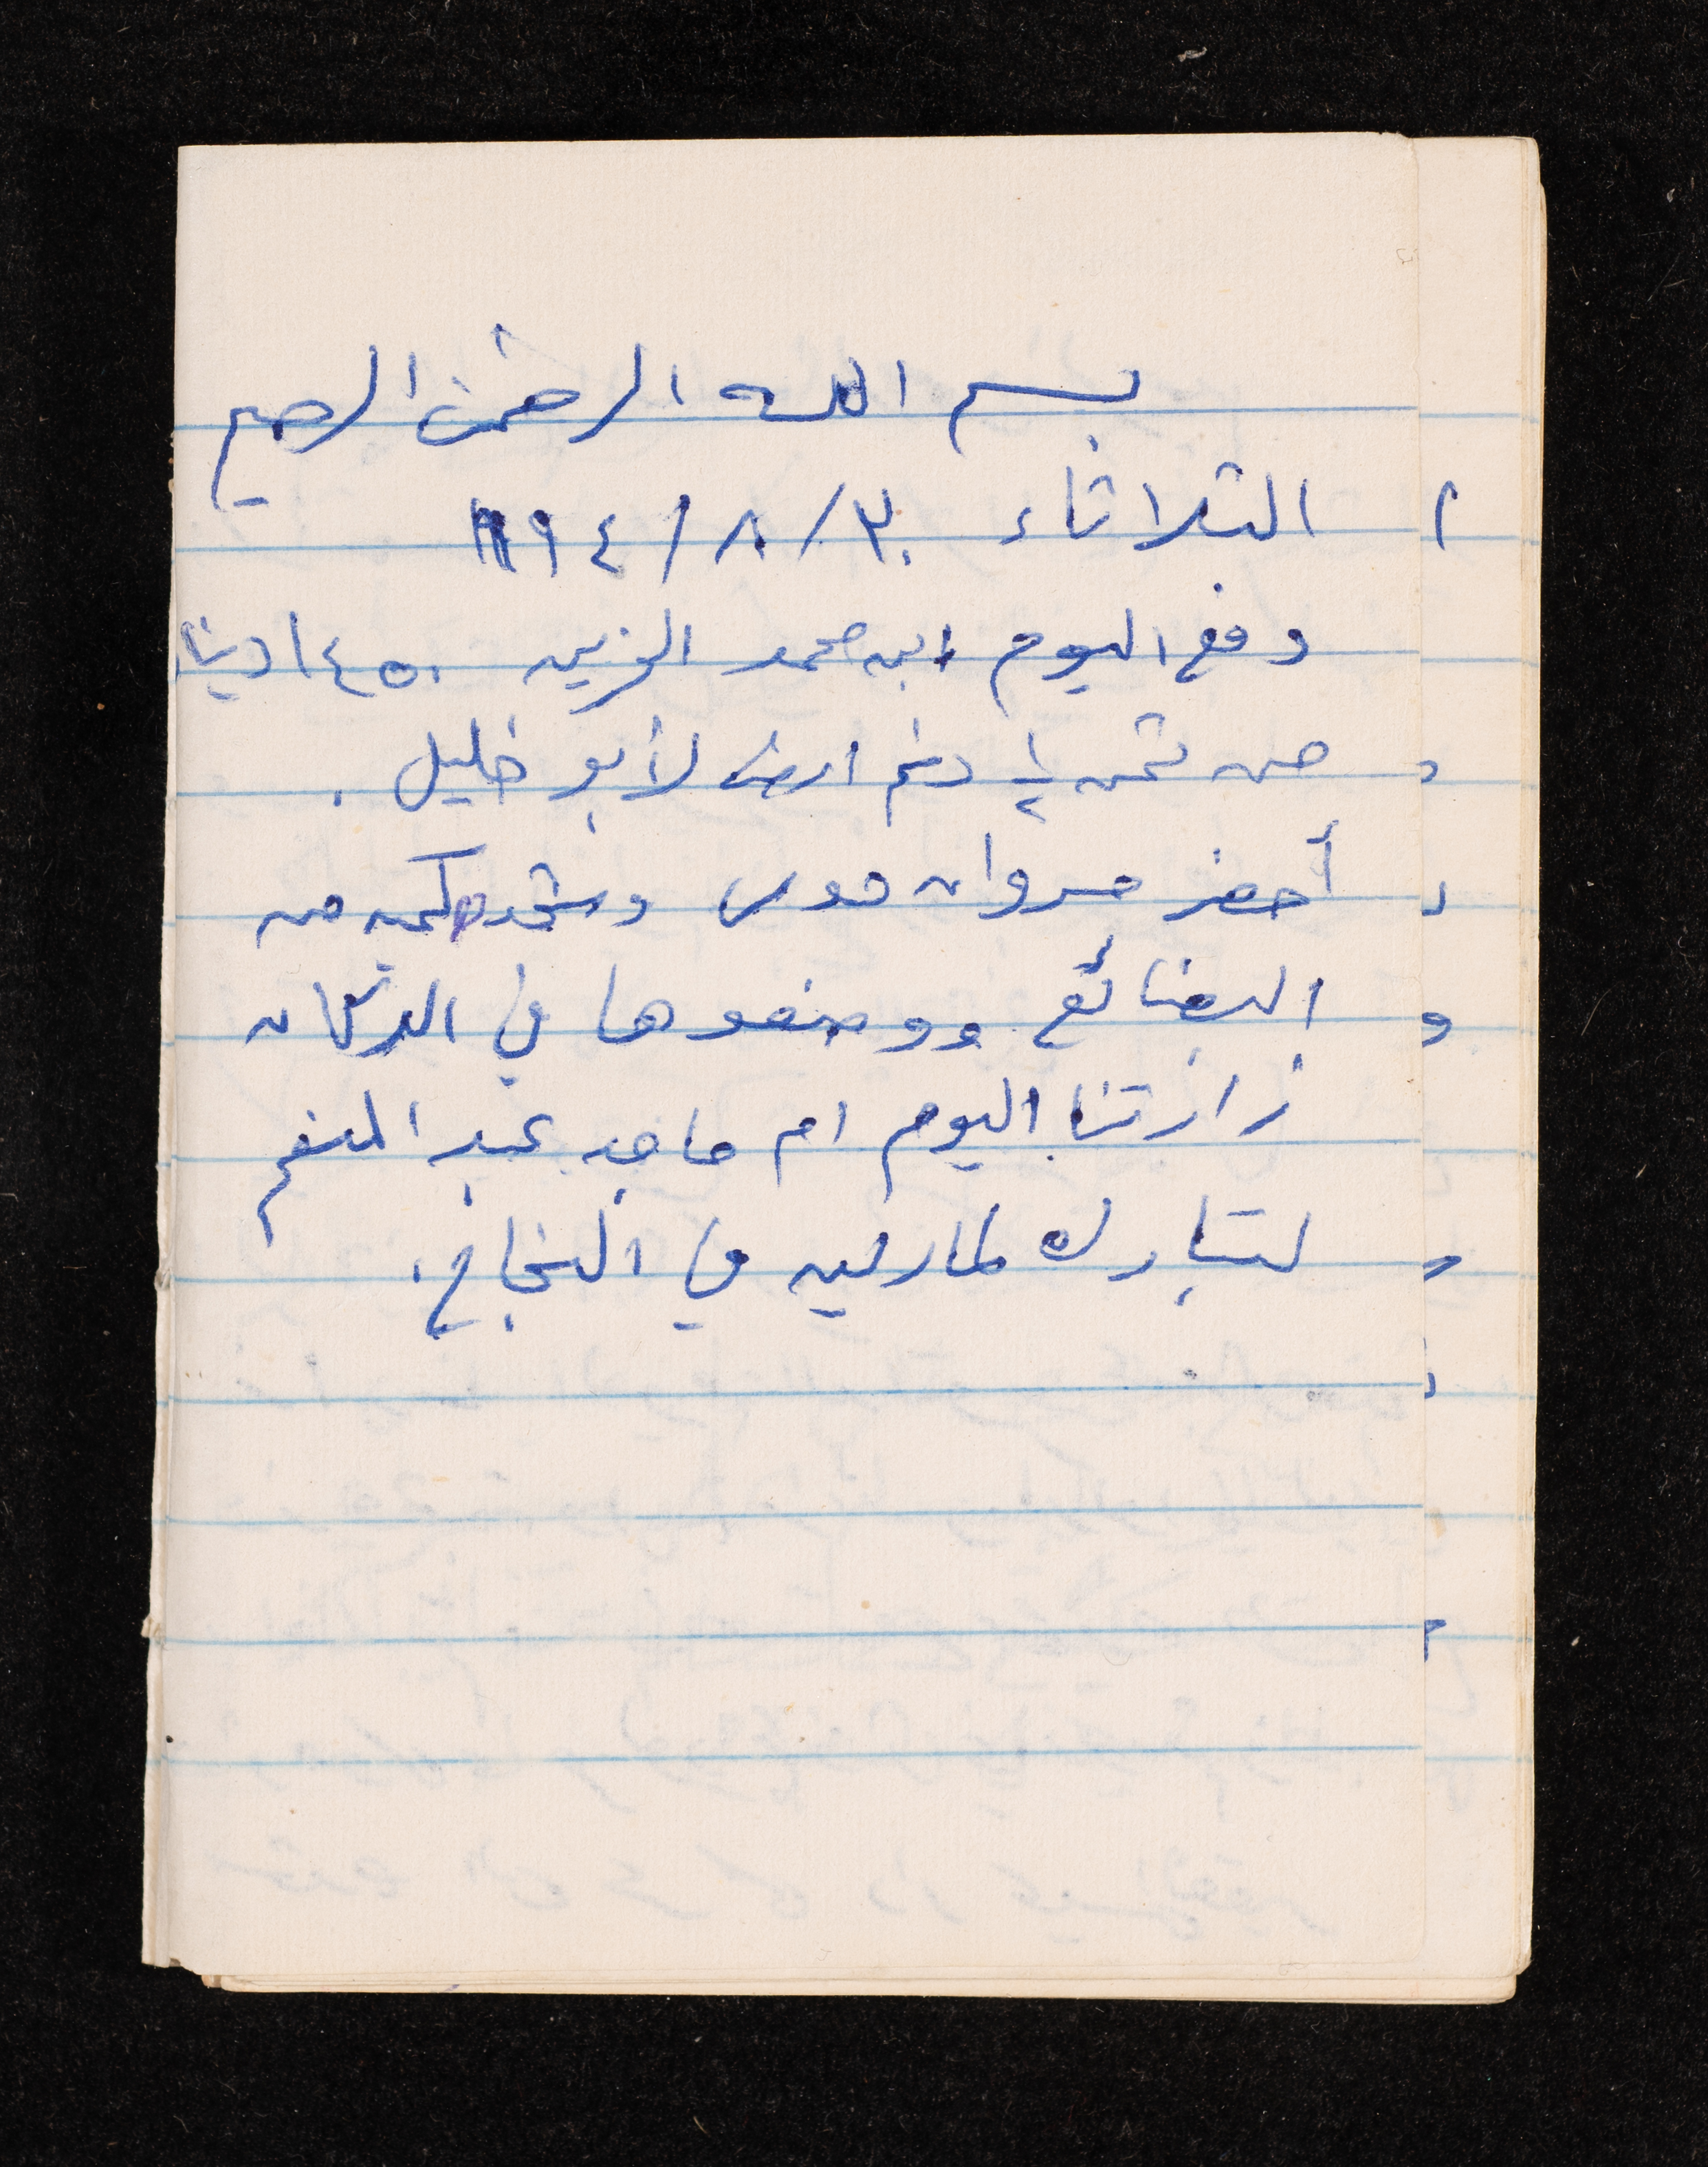 بسم الله الرحمن الرحيم
الثلاثاء ٣٠/٨/١٩٩٤
دفع اليوم ابن محمد الزين ١٤٥٠ دينار
من ثمن ١/٢ دنم ارض لأبو خليل .
أحضر مروان موسى ورشد كمية من
البضائع ووضعوها في الدكان
زارتنا اليوم ام ماجد عبد المنعم
لتبارك لمارلين في النجاح.